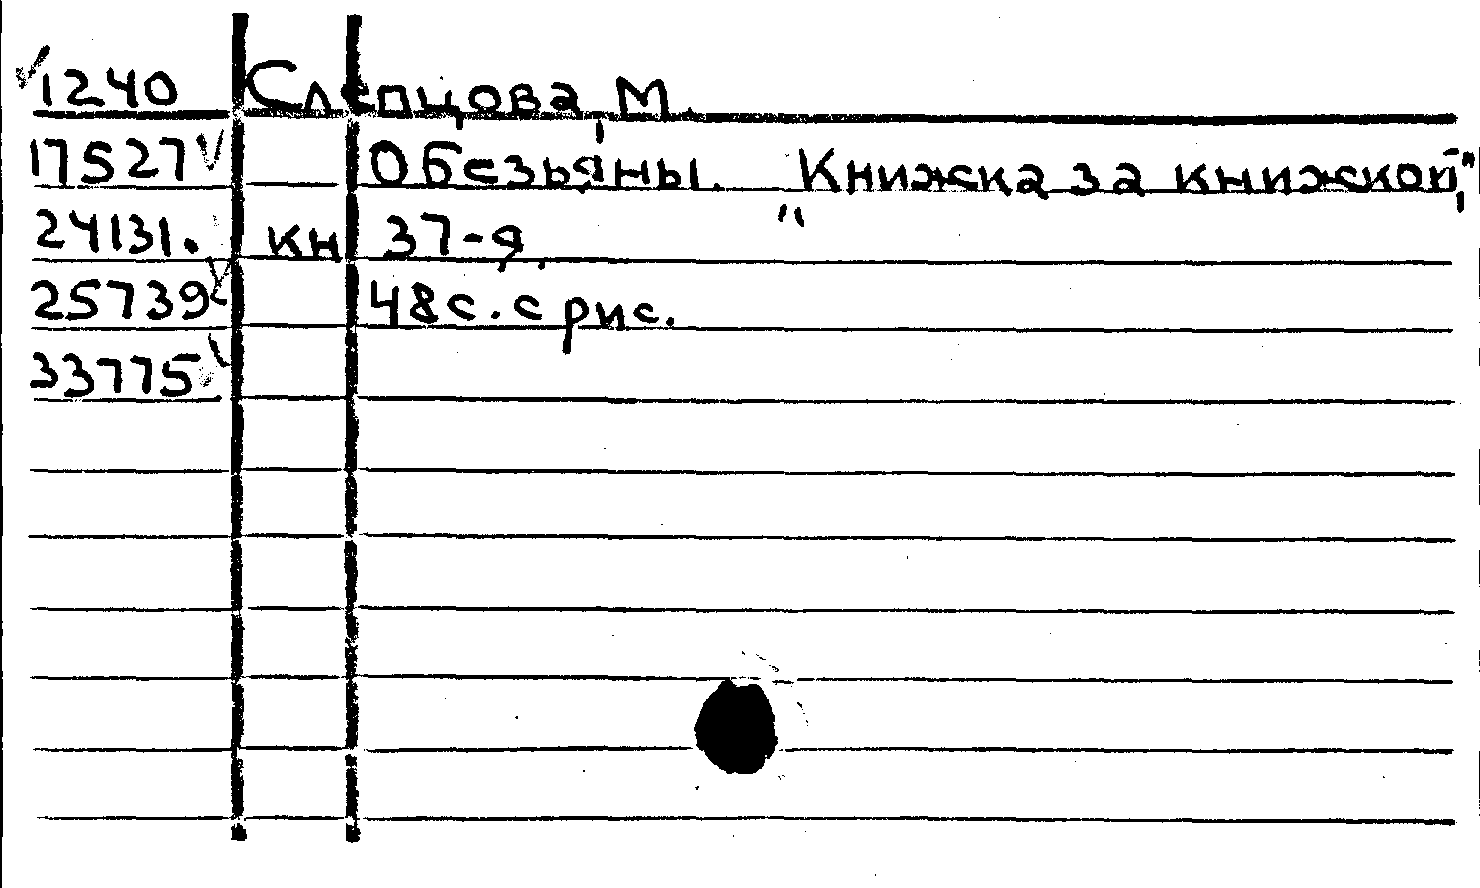 1240 Слепцова, М.
17527 Обезьяны. "Книжка за книжкой",
24131. кн 37-я.
25739 48 с. с рис.
33775